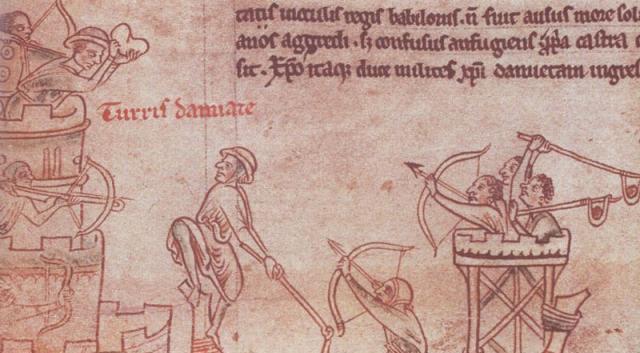 tatis inoculis regis babilonis. n̄ fuit ausus more sol
anos aggredi. sꝫ confusus aufugiens castra
sit. Xp̄o itaqꝫ duce milites xp̄i damietam ingres
Turris damiate